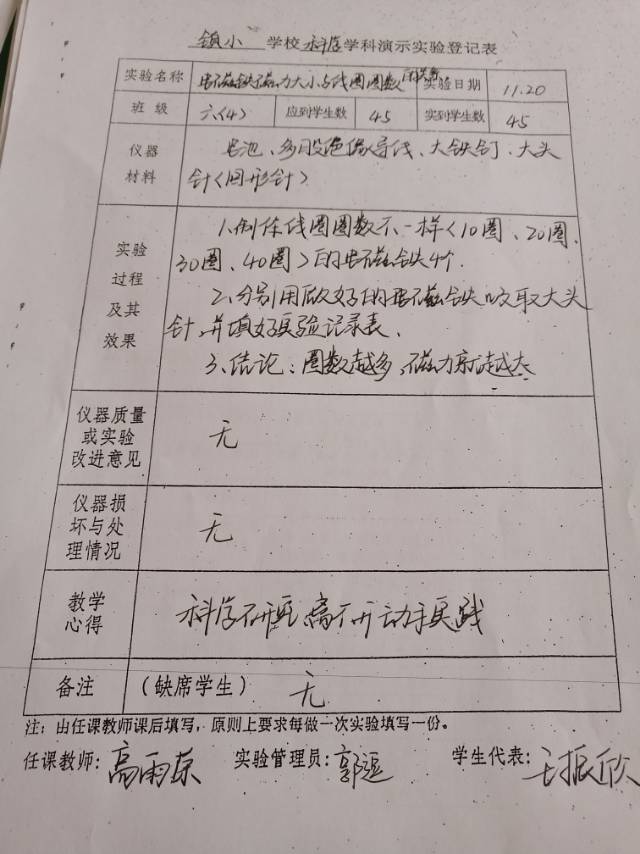 镇小 学校 科学 学科演示实验登记表
实验名称 电磁铁磁力大小与线圈圈数的关系 实验日期 11.20
班 级 六(4) 应到学生数 45 实到学生数 45
仪器 电池、多股绝缘导线、大铁钉、大头
材料 针(回形针)
实验过程及其效果
1.制作线圈圈数不一样(10圈、20圈、
30圈、40圈)的电磁铁4个.
2.分别用做好的电磁铁吸取大头
针,并填好实验记录表.
3.结论:圈数越多,磁力就越大
仪器质量或实验改进意见 无
仪器损坏与处理情况 无
教学心得 科学研究离不开动手实践
备注 (缺席学生) 无
注:由任课教师课后填写,原则上要求每做一次实验填写一份。
任课教师:高雨 实验管理员:郭 学生代表:王振欣